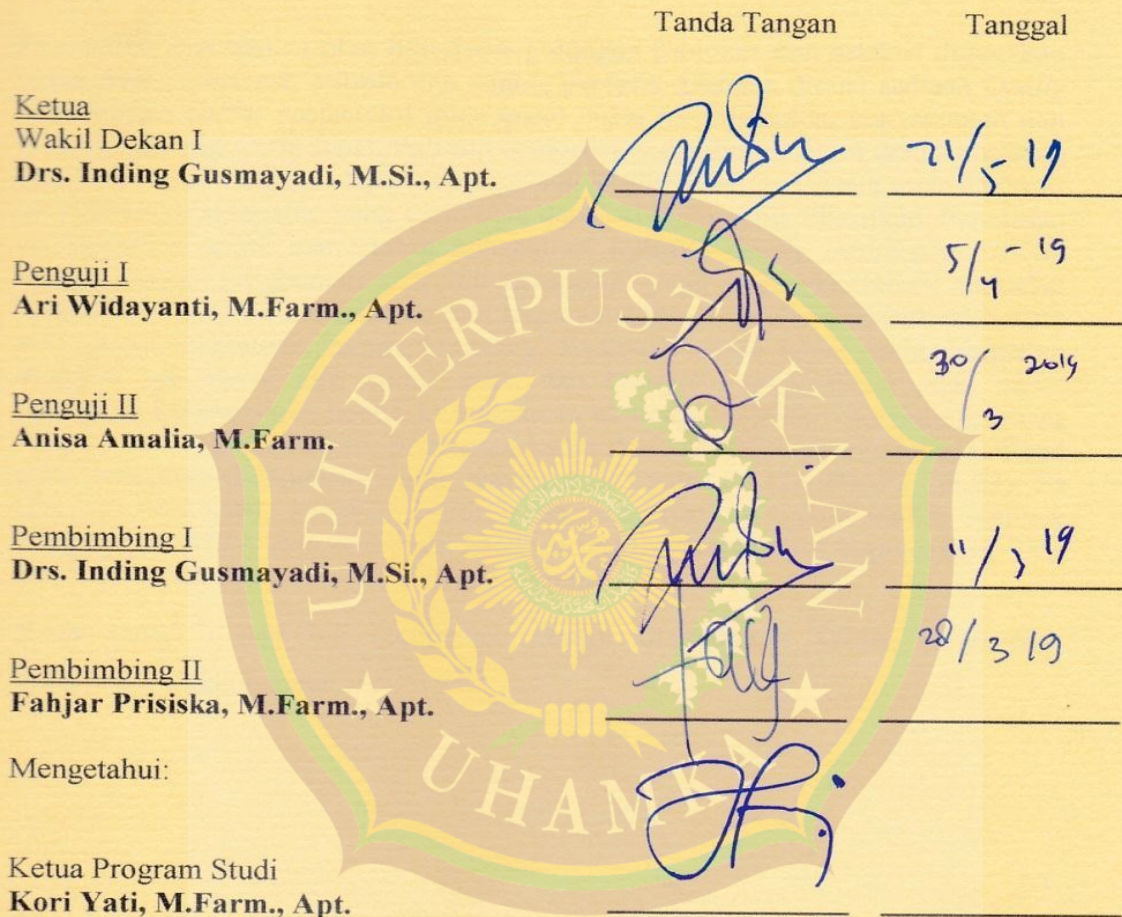 Tanda Tangan Tanggal
Ketua
Wakil Dekan I
Drs. Inding Gusmayadi, M.Si., Apt. 21/5-19
Penguji I
Ari Widayanti, M.Farm., Apt. 5/4-19
Penguji II
Anisa Amalia, M.Farm. 30/3 2019
Pembimbing I
Drs. Inding Gusmayadi, M.Si., Apt. 11/3 19
Pembimbing II
Fahjar Prisiska, M.Farm., Apt. 28/3 19
Mengetahui:
Ketua Program Studi
Kori Yati, M.Farm., Apt.
UPT PERPUSTAKAAN
UHAMKA